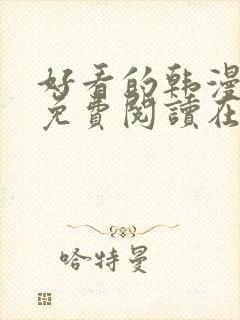 好看的韩漫
免費閱讀在
哈特曼